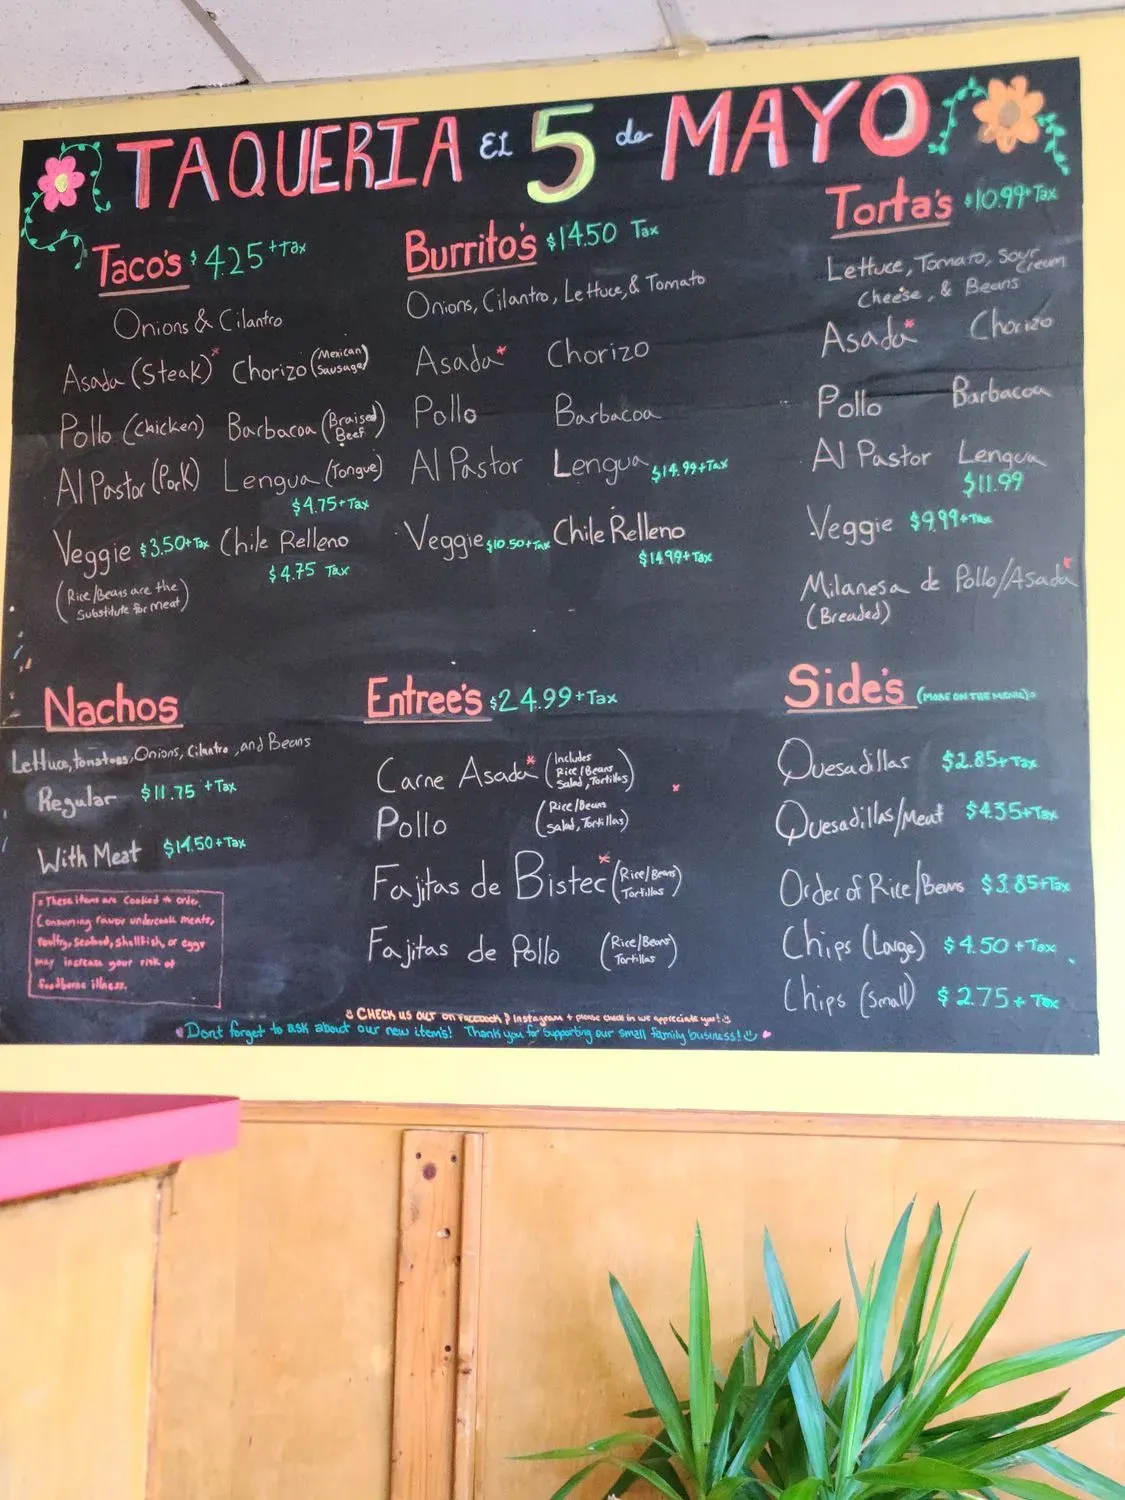 TAQUERIA EL 5 de MAYO
Taco's $4.25 + Tax
Onions & Cilantro
Asada (Steak)* Chorizo (Mexican Sausage)
Pollo (Chicken) Barbacoa (Braised Beef)
Al Pastor (Pork) Lengua (Tongue)
$4.75 + Tax
Veggie $3.50 + Tax Chile Relleno
$4.75 Tax
(Rice/Beans are the
Substitute for meat)
Burrito's $14.50 Tax
Onions, Cilantro, Lettuce, & Tomato
Asada* Chorizo
Pollo Barbacoa
Al Pastor Lengua $14.99 + Tax
Veggie $10.50 + Tax Chile Relleno
$14.99 + Tax
Torta's $10.99 + Tax
Lettuce, Tomato, Sour Cream
Cheese, & Beans
Asada* Chorizo
Pollo Barbacoa
Al Pastor Lengua
$11.99
Veggie $9.99 + Tax
Milanesa de Pollo/Asada*
(Breaded)
Nachos
Lettuce, tomatoes, Onions, Cilantro, and Beans
Regular $11.75 + Tax
With Meat $14.50 + Tax
* These items are Cooked to order.
Consuming raw or undercook meats,
Poultry, Seafood, Shellfish, or eggs
may increase your risk of
foodborne illness.
Entree's $24.99 + Tax
Carne Asada* (Includes
Rice/Beans
Salad, Tortillas)
Pollo (Rice/Beans
Salad, Tortillas)
*
Fajitas de Bistec* (Rice/Beans
Tortillas)
Fajitas de Pollo (Rice/Beans)
Tortillas
Side's (MORE ON THE MENU)
Quesadillas $2.85 + Tax
Quesadillas/Meat $4.35 + Tax
Order of Rice/Beans $3.85 + Tax
Chips (Large) $4.50 + Tax
Chips (Small) $2.75 + Tax
CHECK US OUT on FACEBOOK & Instagram + please check in we appreciate you!
Don't forget to ask about our new item's! Thank you for supporting our small family business!